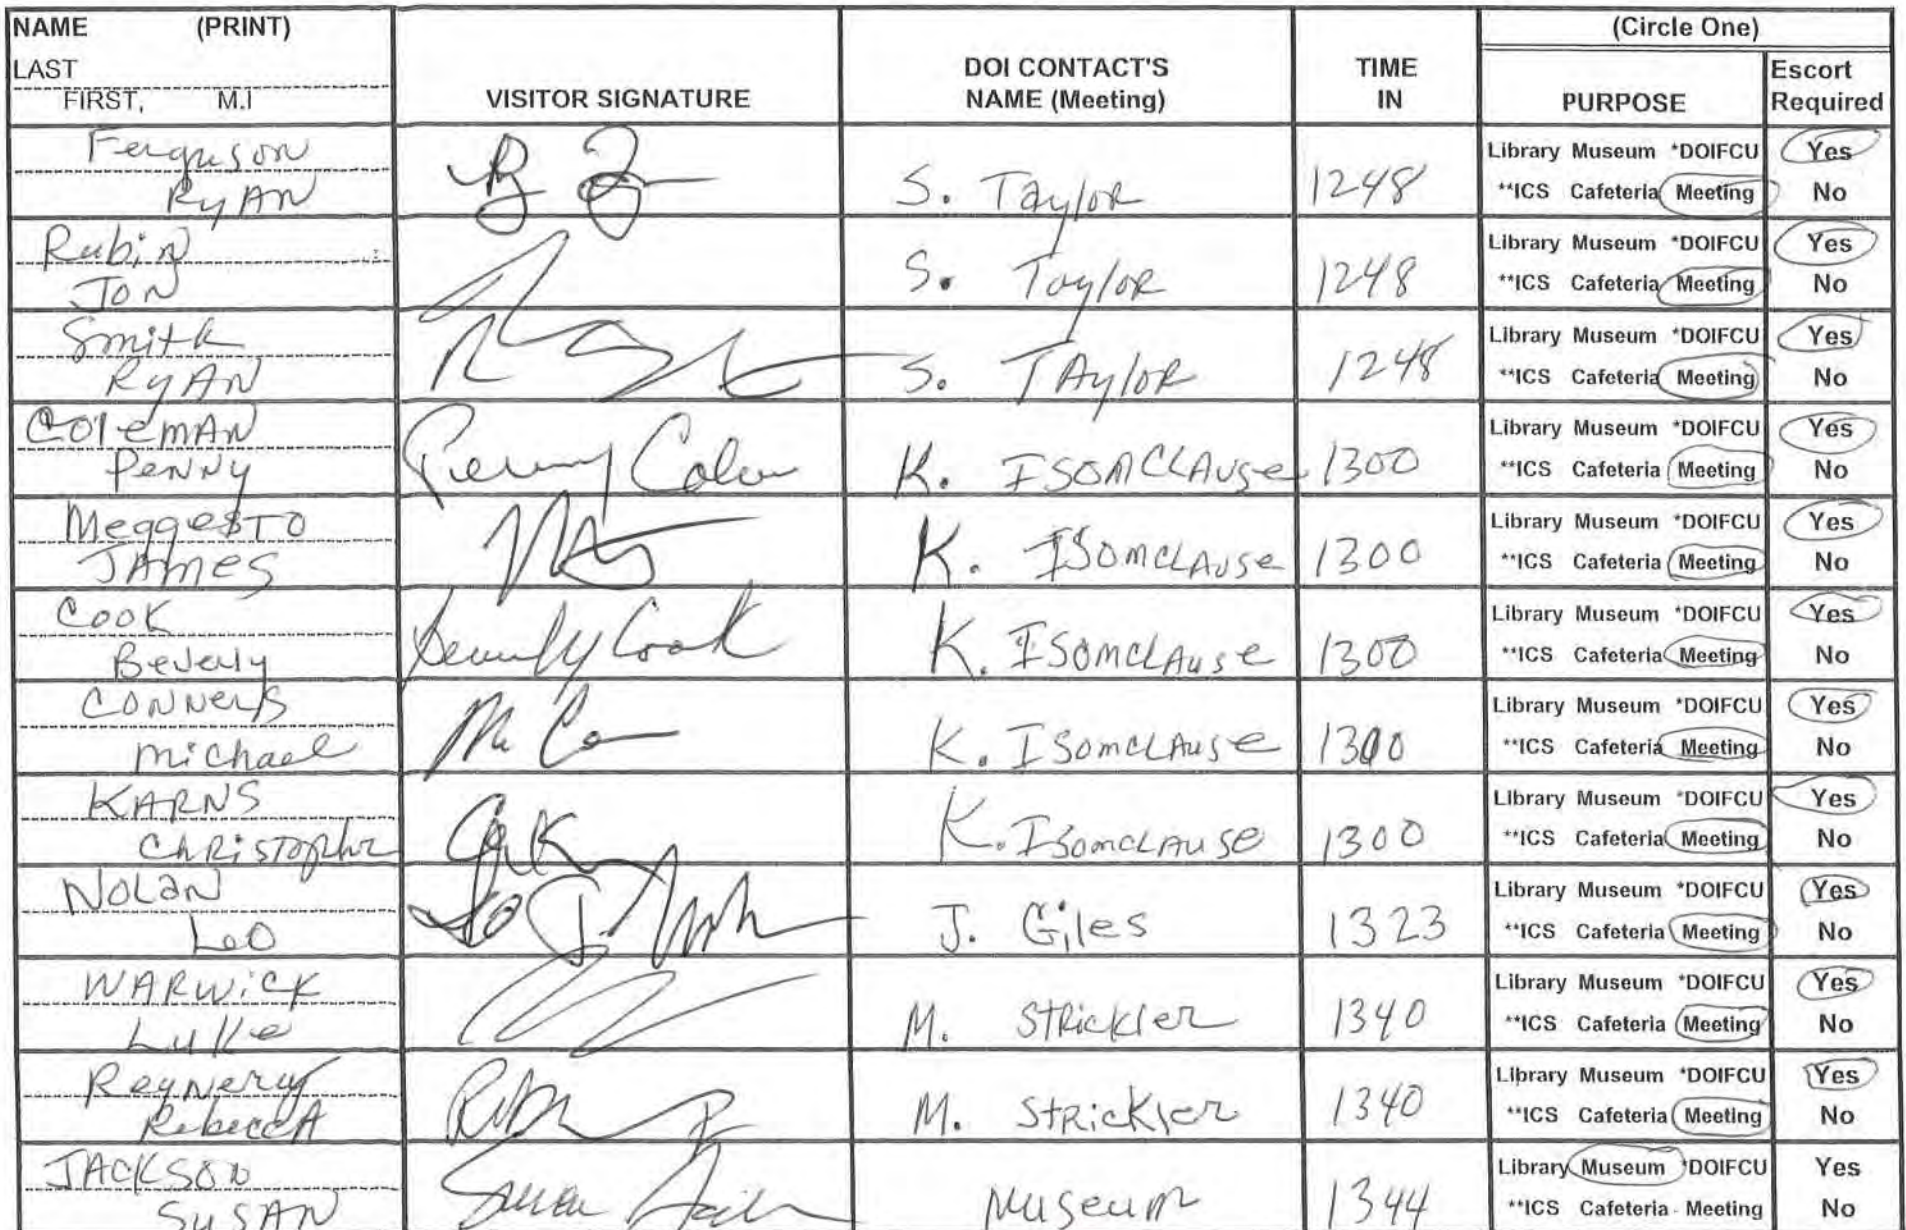 NAME (PRINT)
LAST
FIRST, M.I
VISITOR SIGNATURE
DOI CONTACT'S
NAME (Meeting)
TIME
IN
(Circle One)
PURPOSE
Escort
Required
Ferguson
RyAN
S. Taylor
1248
Library Museum *DOIFCU Yes
**ICS Cafeteria Meeting No
Rubin
JON
S. Taylor
1248
Library Museum *DOIFCU Yes
**ICS Cafeteria Meeting No
Smith
RyAN
S. TAylor
1248
Library Museum *DOIFCU Yes
**ICS Cafeteria Meeting No
COleMAN
PeNNy
Penny
K. ISOMCLAUSe
1300
Library Museum *DOIFCU Yes
**ICS Cafeteria Meeting No
MeggesTO
JAmes
K. ISOMCLAUSe
1300
Library Museum *DOIFCU Yes
**ICS Cafeteria Meeting No
COOK
Beverly
Beverly Cook
K. ISOMCLAUSe
1300
Library Museum *DOIFCU Yes
**ICS Cafeteria Meeting No
CONNers
michael
K. ISomcLAuse
1300
Library Museum *DOIFCU Yes
**ICS Cafeteria Meeting No
KARNS
ChRiSTopher
K. ISomcLAuse
1300
Library Museum *DOIFCU Yes
**ICS Cafeteria Meeting No
NOLaN
Leo
J. Giles
1323
Library Museum *DOIFCU Yes
**ICS Cafeteria Meeting No
WARWiCK
Luke
M. STRickler
1340
Library Museum *DOIFCU Yes
**ICS Cafeteria Meeting No
RebeccA
M. STRickler
1340
Library Museum *DOIFCU Yes
**ICS Cafeteria Meeting No
JACKSON
SuSAN
Susan
Museum
1344
Library Museum *DOIFCU Yes
**ICS Cafeteria Meeting No